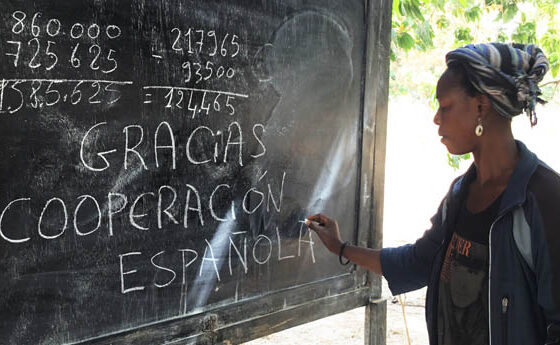 860.000
725.625
1585.625
- 217965
93500
= 124,465
GRACiAS
COOPERACIÓN
ESPAÑOLA